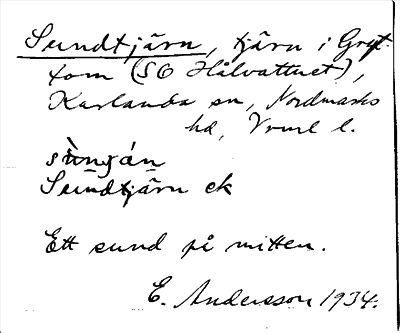 Sundtjärn, tjärn i Gryt-
tom (SO Hålvattnet),
Karlanda sn, Nordmarks
hd, Vrml l.
Sundtjärn ek
Ett sund på mitten.
E. Andersson 1934.